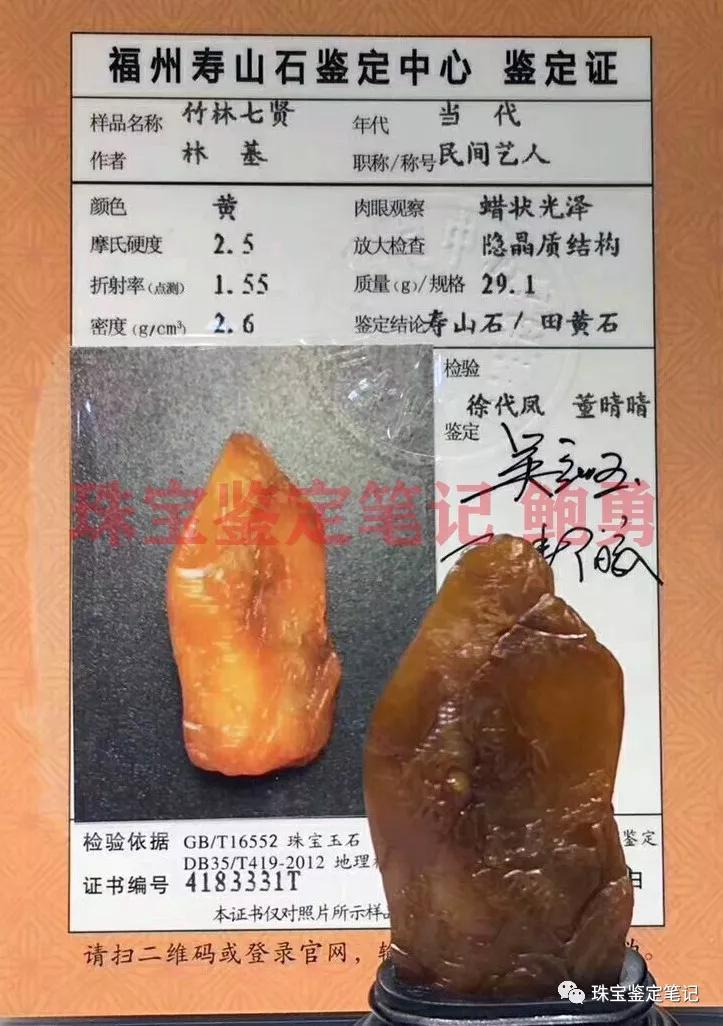 福州寿山石鉴定中心 鉴定证
样品名称 竹林七贤 年代 当代
作者 林基 职称/称号 民间艺人
颜色 黄 肉眼观察 蜡状光泽
摩氏硬度 2.5 放大检查 隐晶质结构
折射率(点测) 1.55 质量(g)/规格 29.1
密度(g/cm³) 2.6 鉴定结论 寿山石/田黄石
检验
徐代凤 董晴晴
鉴定
珠宝鉴定笔记 鲍勇
检验依据 GB/T16552 珠宝玉石 鉴定
DB35/T419-2012 地理
证书编号 4183331T 日
本证书仅对照片所示样品
请扫二维码或登录官网，输
珠宝鉴定笔记